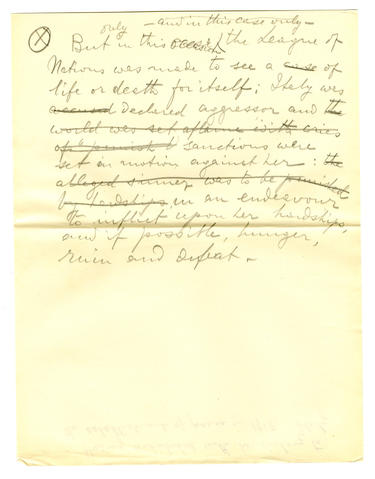 only - and in this case only -
(X) But in this occasion the League of
Nations was made to see a case of
life or death for itself; Italy was
accused declared aggressor and the
world was set aflame with cries
of "punish" sanctions were
set in motion against her: the
alleged sinner was to be punished
by hardships in an endeavour
to inflict upon her hardships,
and if possible, hunger,
ruin and defeat.